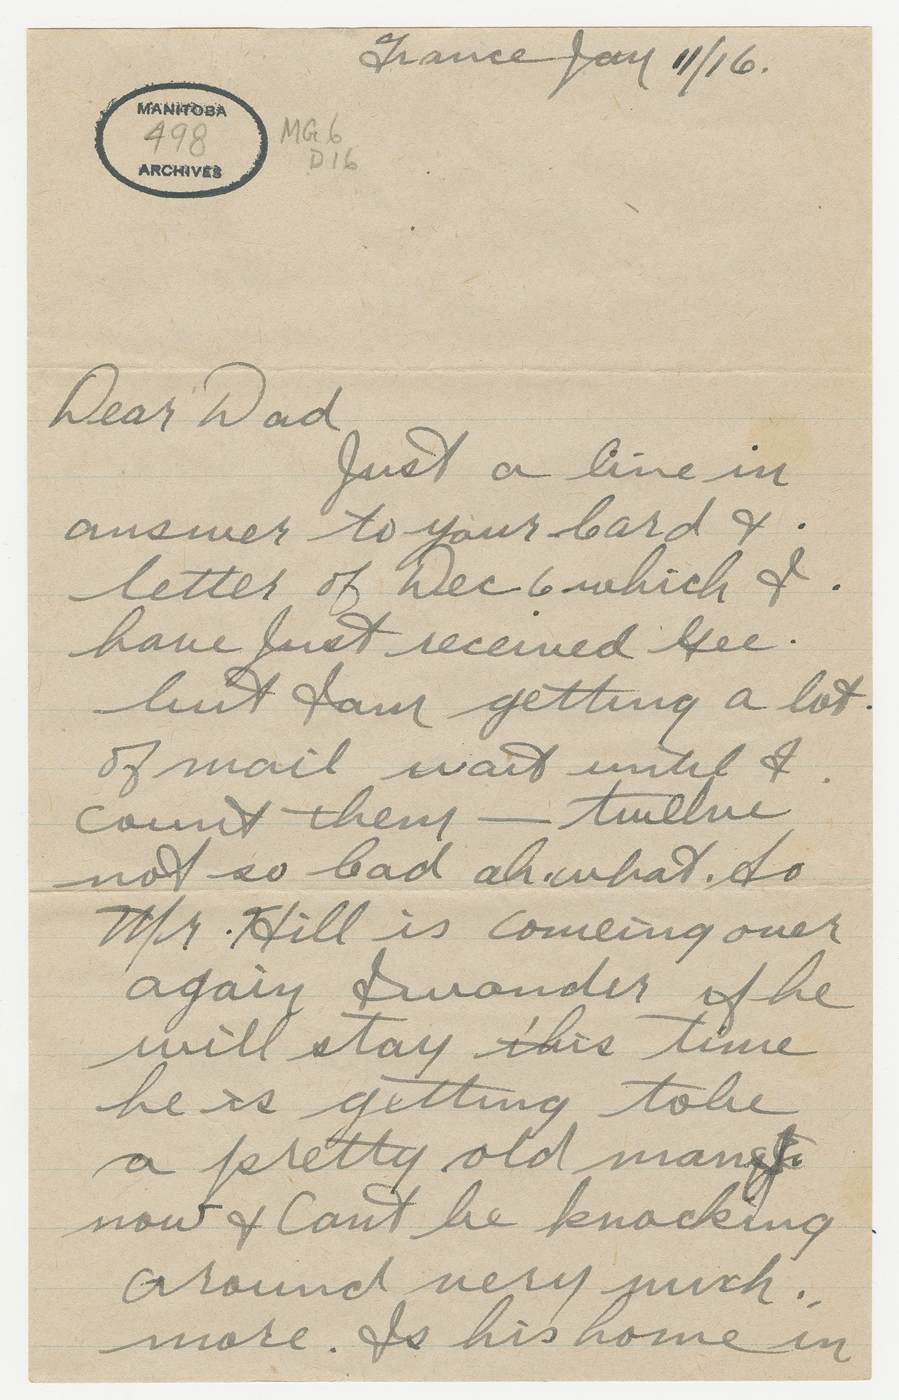 France Jan 11/16.
MANITOBA
498
ARCHIVES
MG 6
D 16
Dear Dad
Just a line in
answer to your card & .
letter of Dec 6 which I .
have just received Gee .
but I am getting a lot .
of mail wait until I .
count them — twelve
not so bad ah. what. So
Mr. Hill is comeing over
again I wonder if he
will stay this time
he is getting to be
a pretty old man
now & Cant be knocking
around very much .
more. Is his home in